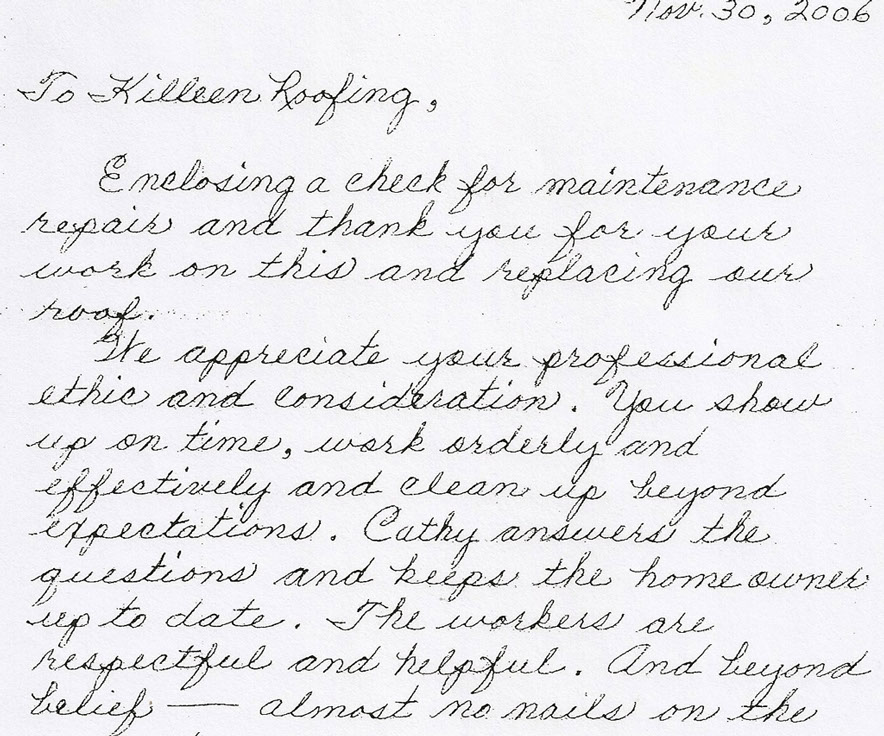 Nov. 30, 2006
To Killeen Roofing,
Enclosing a check for maintenance
repair and thank you for your
work on this and replacing our
roof.
We appreciate your professional
ethic and consideration. You show
up on time, work orderly and
effectively and clean up beyond
expectations. Cathy answers the
questions and keeps the home owner
up to date. The workers are
respectful and helpful. And beyond
belief — almost no nails on the